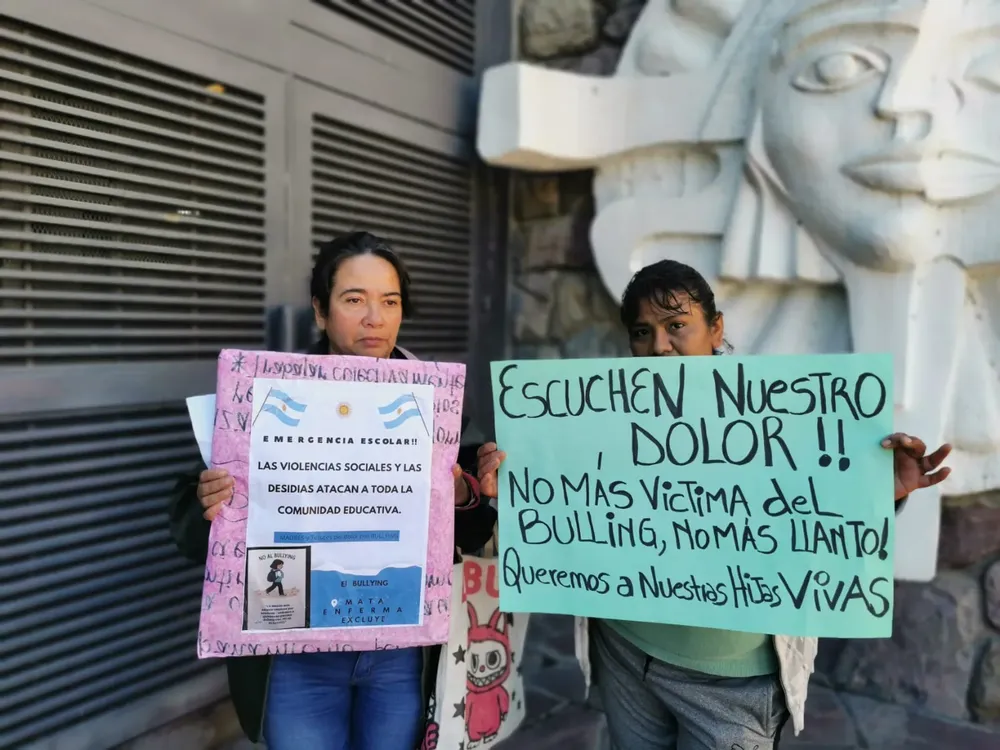 EMERGENCIA ESCOLAR!!
LAS VIOLENCIAS SOCIALES Y LAS
DESIDIAS ATACAN A TODA LA
COMUNIDAD EDUCATIVA.
NO AL BULLYING
El BULLYING
MATA
ENFERMA
EXCLUYE
ESCUCHEN NUESTRO
DOLOR!!
NO MÁS VÍCTIMA del
BULLING, NO MÁS LLANTO!
Queremos a Nuestras Hijas VIVAS
BU